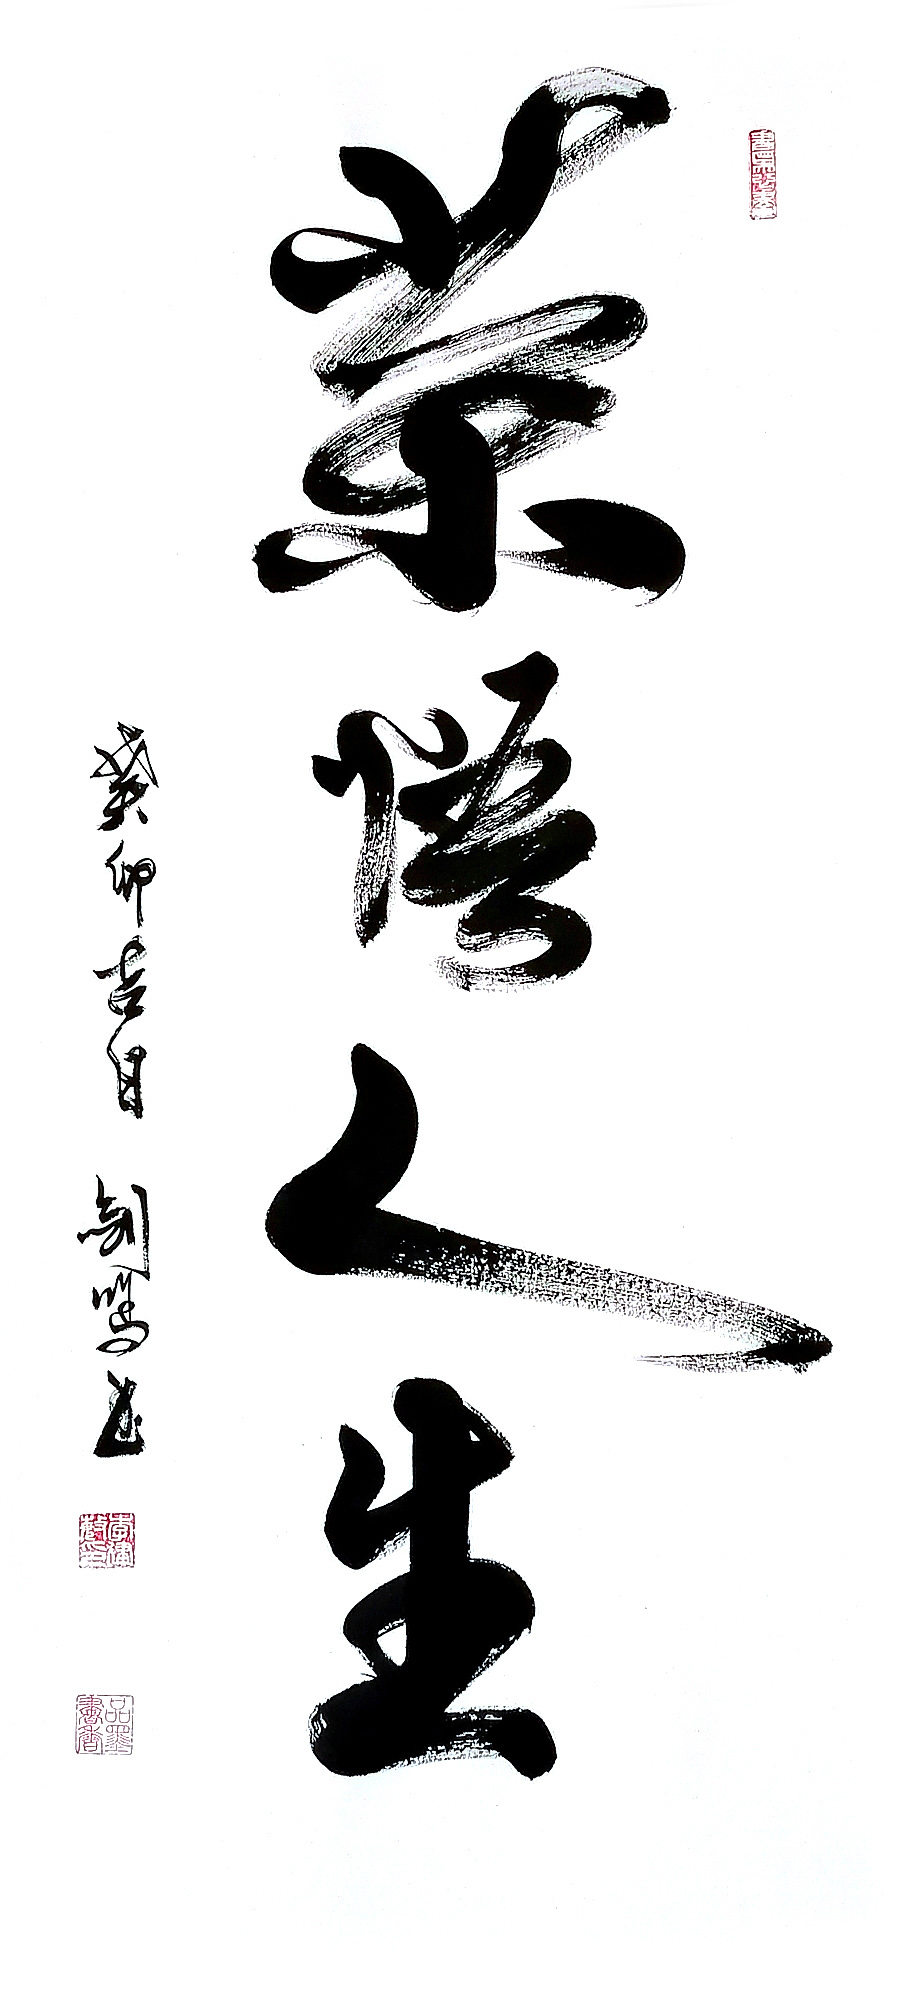 茶悟人生
癸卯吉月 剑鸣书
品墨书香